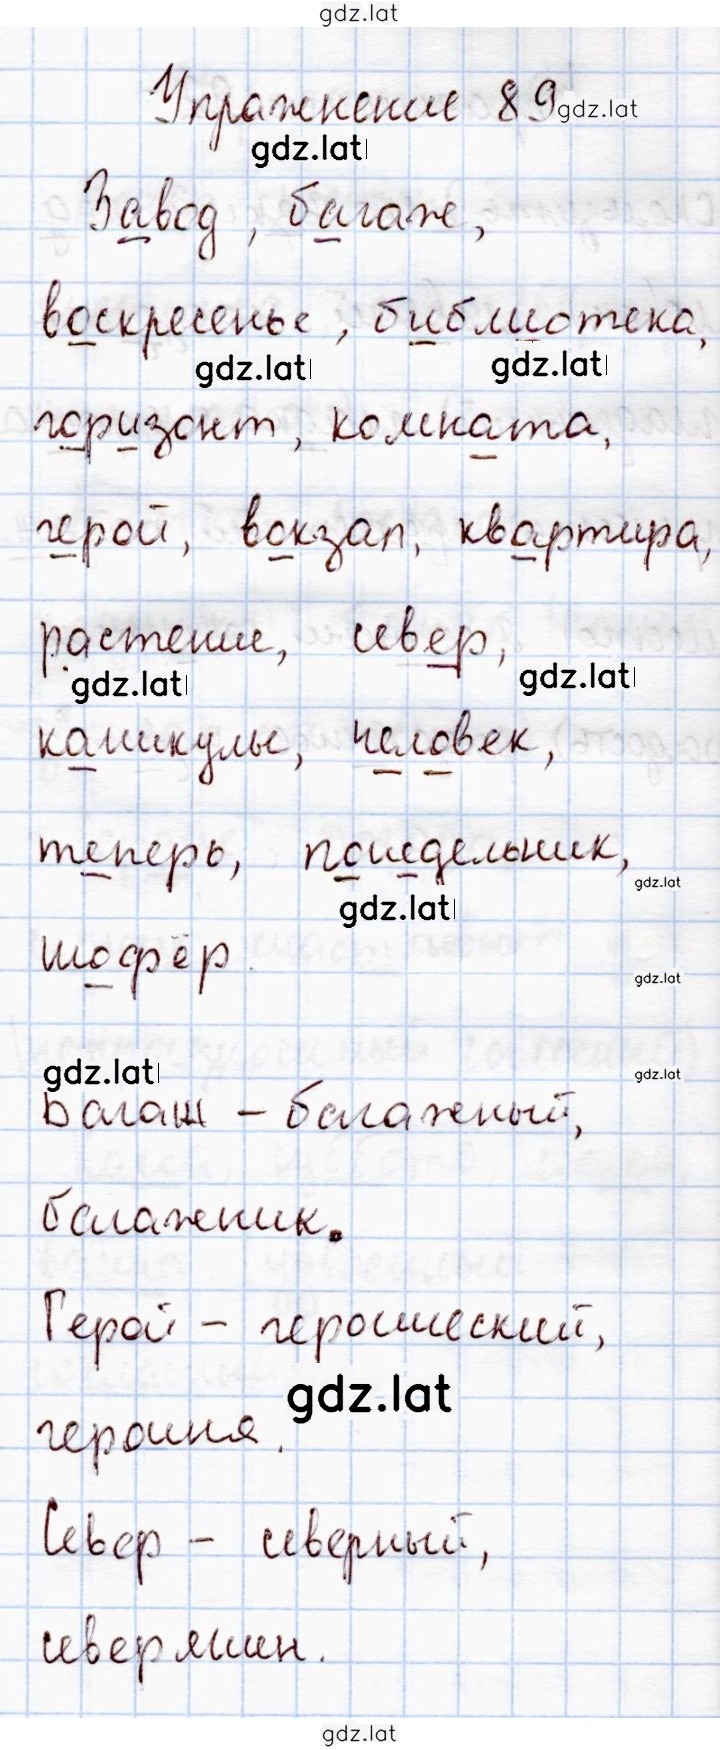 gdz.lat
Упражнение 89
gdz.lat
gdz.lat
Завод, багаж,
воскресенье, библиотека,
gdz.lat
gdz.lat
горизонт, комната,
герой, вокзал, квартира,
растение, север,
gdz.lat
gdz.lat
каникулы, человек,
теперь, понедельник,
gdz.lat
gdz.lat
шофёр.
gdz.lat
gdz.lat
gdz.lat
Багаж – багажный,
багажник.
Герой – героический,
gdz.lat
героиня.
Север – северный,
северянин.
gdz.lat